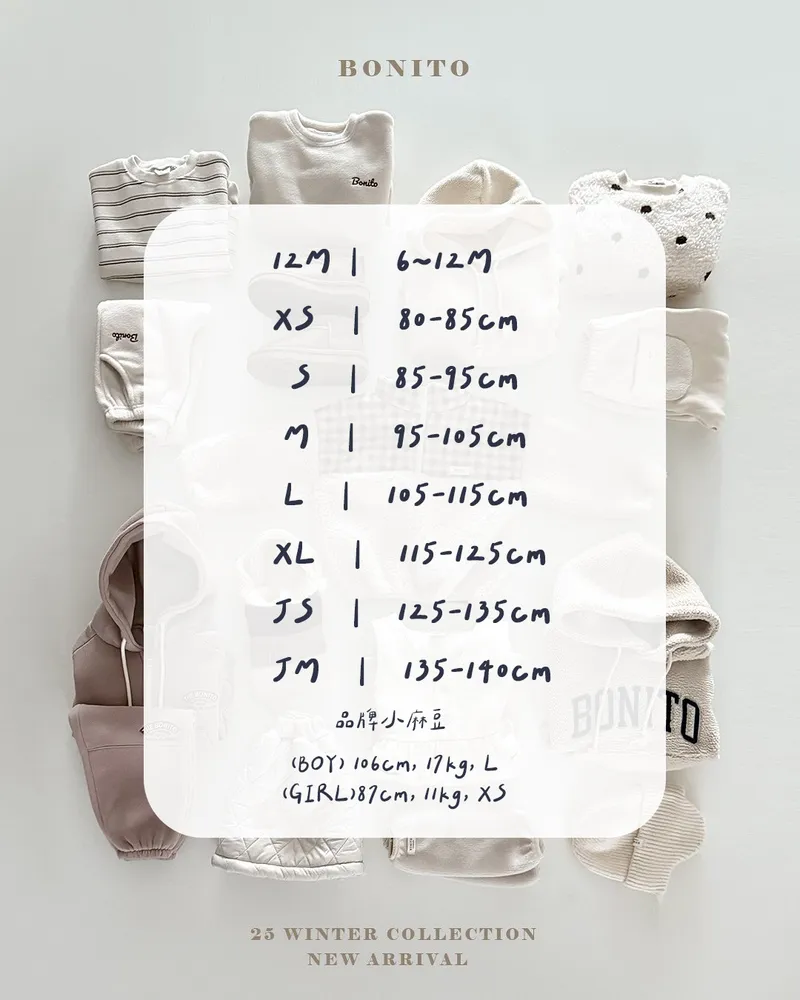 BONITO
Bonito
Bonito
12M | 6~12M
XS | 80-85cm
S | 85-95cm
M | 95-105cm
L | 105-115cm
XL | 115-125cm
JS | 125-135cm
JM | 135-140cm
BONITO
品牌小麻豆
(BOY) 106cm, 17kg, L
(GIRL)87cm, 11kg, XS
25 WINTER COLLECTION
NEW ARRIVAL